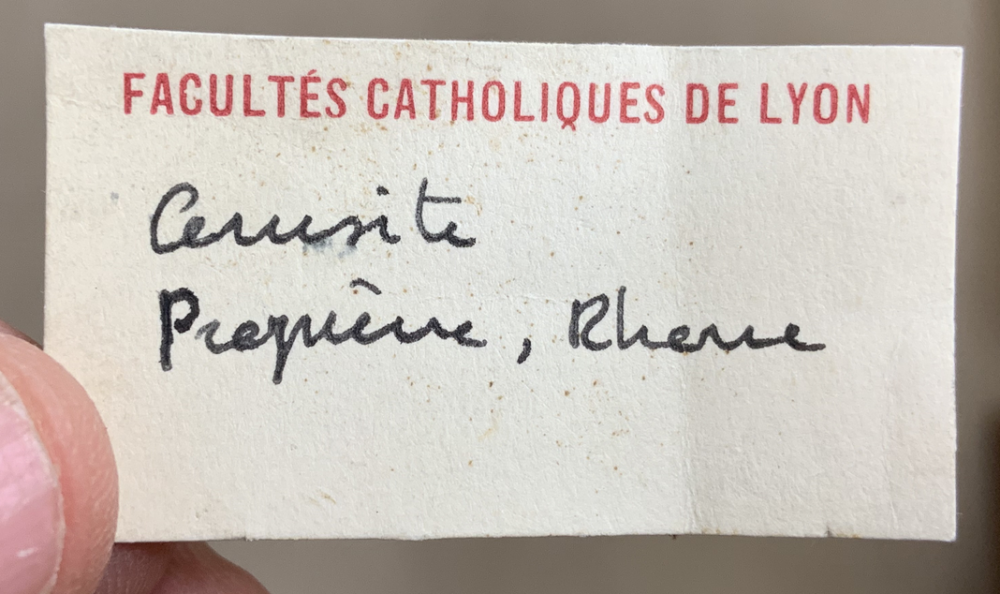 FACULTÉS CATHOLIQUES DE LYON
Cerusite
Propière, Rhone